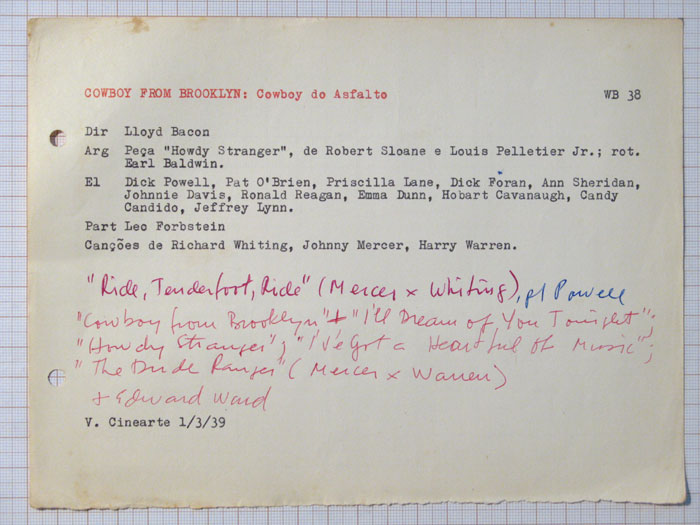 COWBOY FROM BROOKLYN: Cowboy do Asfalto WB 38
Dir Lloyd Bacon
Arg Peça "Howdy Stranger", de Robert Sloane e Louis Pelletier Jr.; rot.
Earl Baldwin.
El Dick Powell, Pat O'Brien, Priscilla Lane, Dick Foran, Ann Sheridan,
Johnnie Davis, Ronald Reagan, Emma Dunn, Hobart Cavanaugh, Candy
Candido, Jeffrey Lynn.
Part Leo Forbstein
Canções de Richard Whiting, Johnny Mercer, Harry Warren.
"Ride, Tenderfoot, Ride" (Mercer x Whiting), p/ Powell
"Cowboy from Brooklyn" + "I'll Dream of You Tonight";
"Howdy Stranger"; "I've Got a Heartful of Music";
"The Dude Ranger" (Mercer x Warren)
+ Edward Ward
V. Cinearte 1/3/39